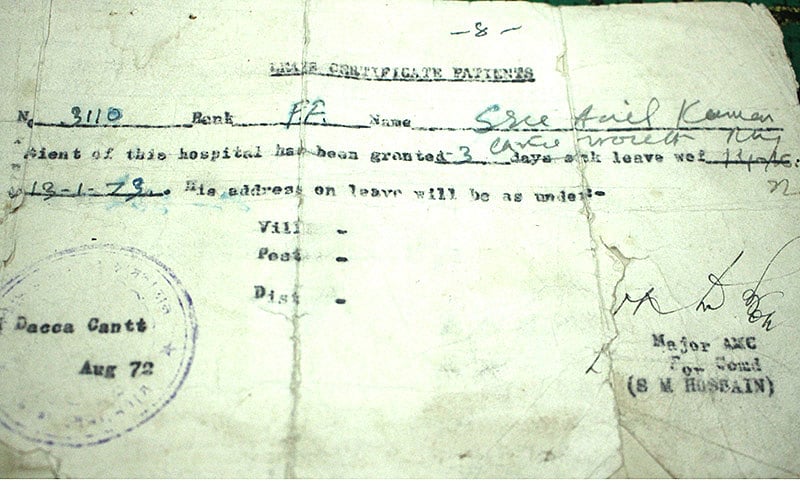 -8-
LEAVE CERTIFICATE PATIENTS
No 3110 Rank FF. Name Sree Anil Kumar
Roy
tient of this hospital has been granted 3 days sick leave wef
13-1-73. His address on leave will be as under:-
Vill -
Post -
Dist -
Dacca Cantt
Aug 72
Major AMC
For Comd
(S M HOSSAIN)